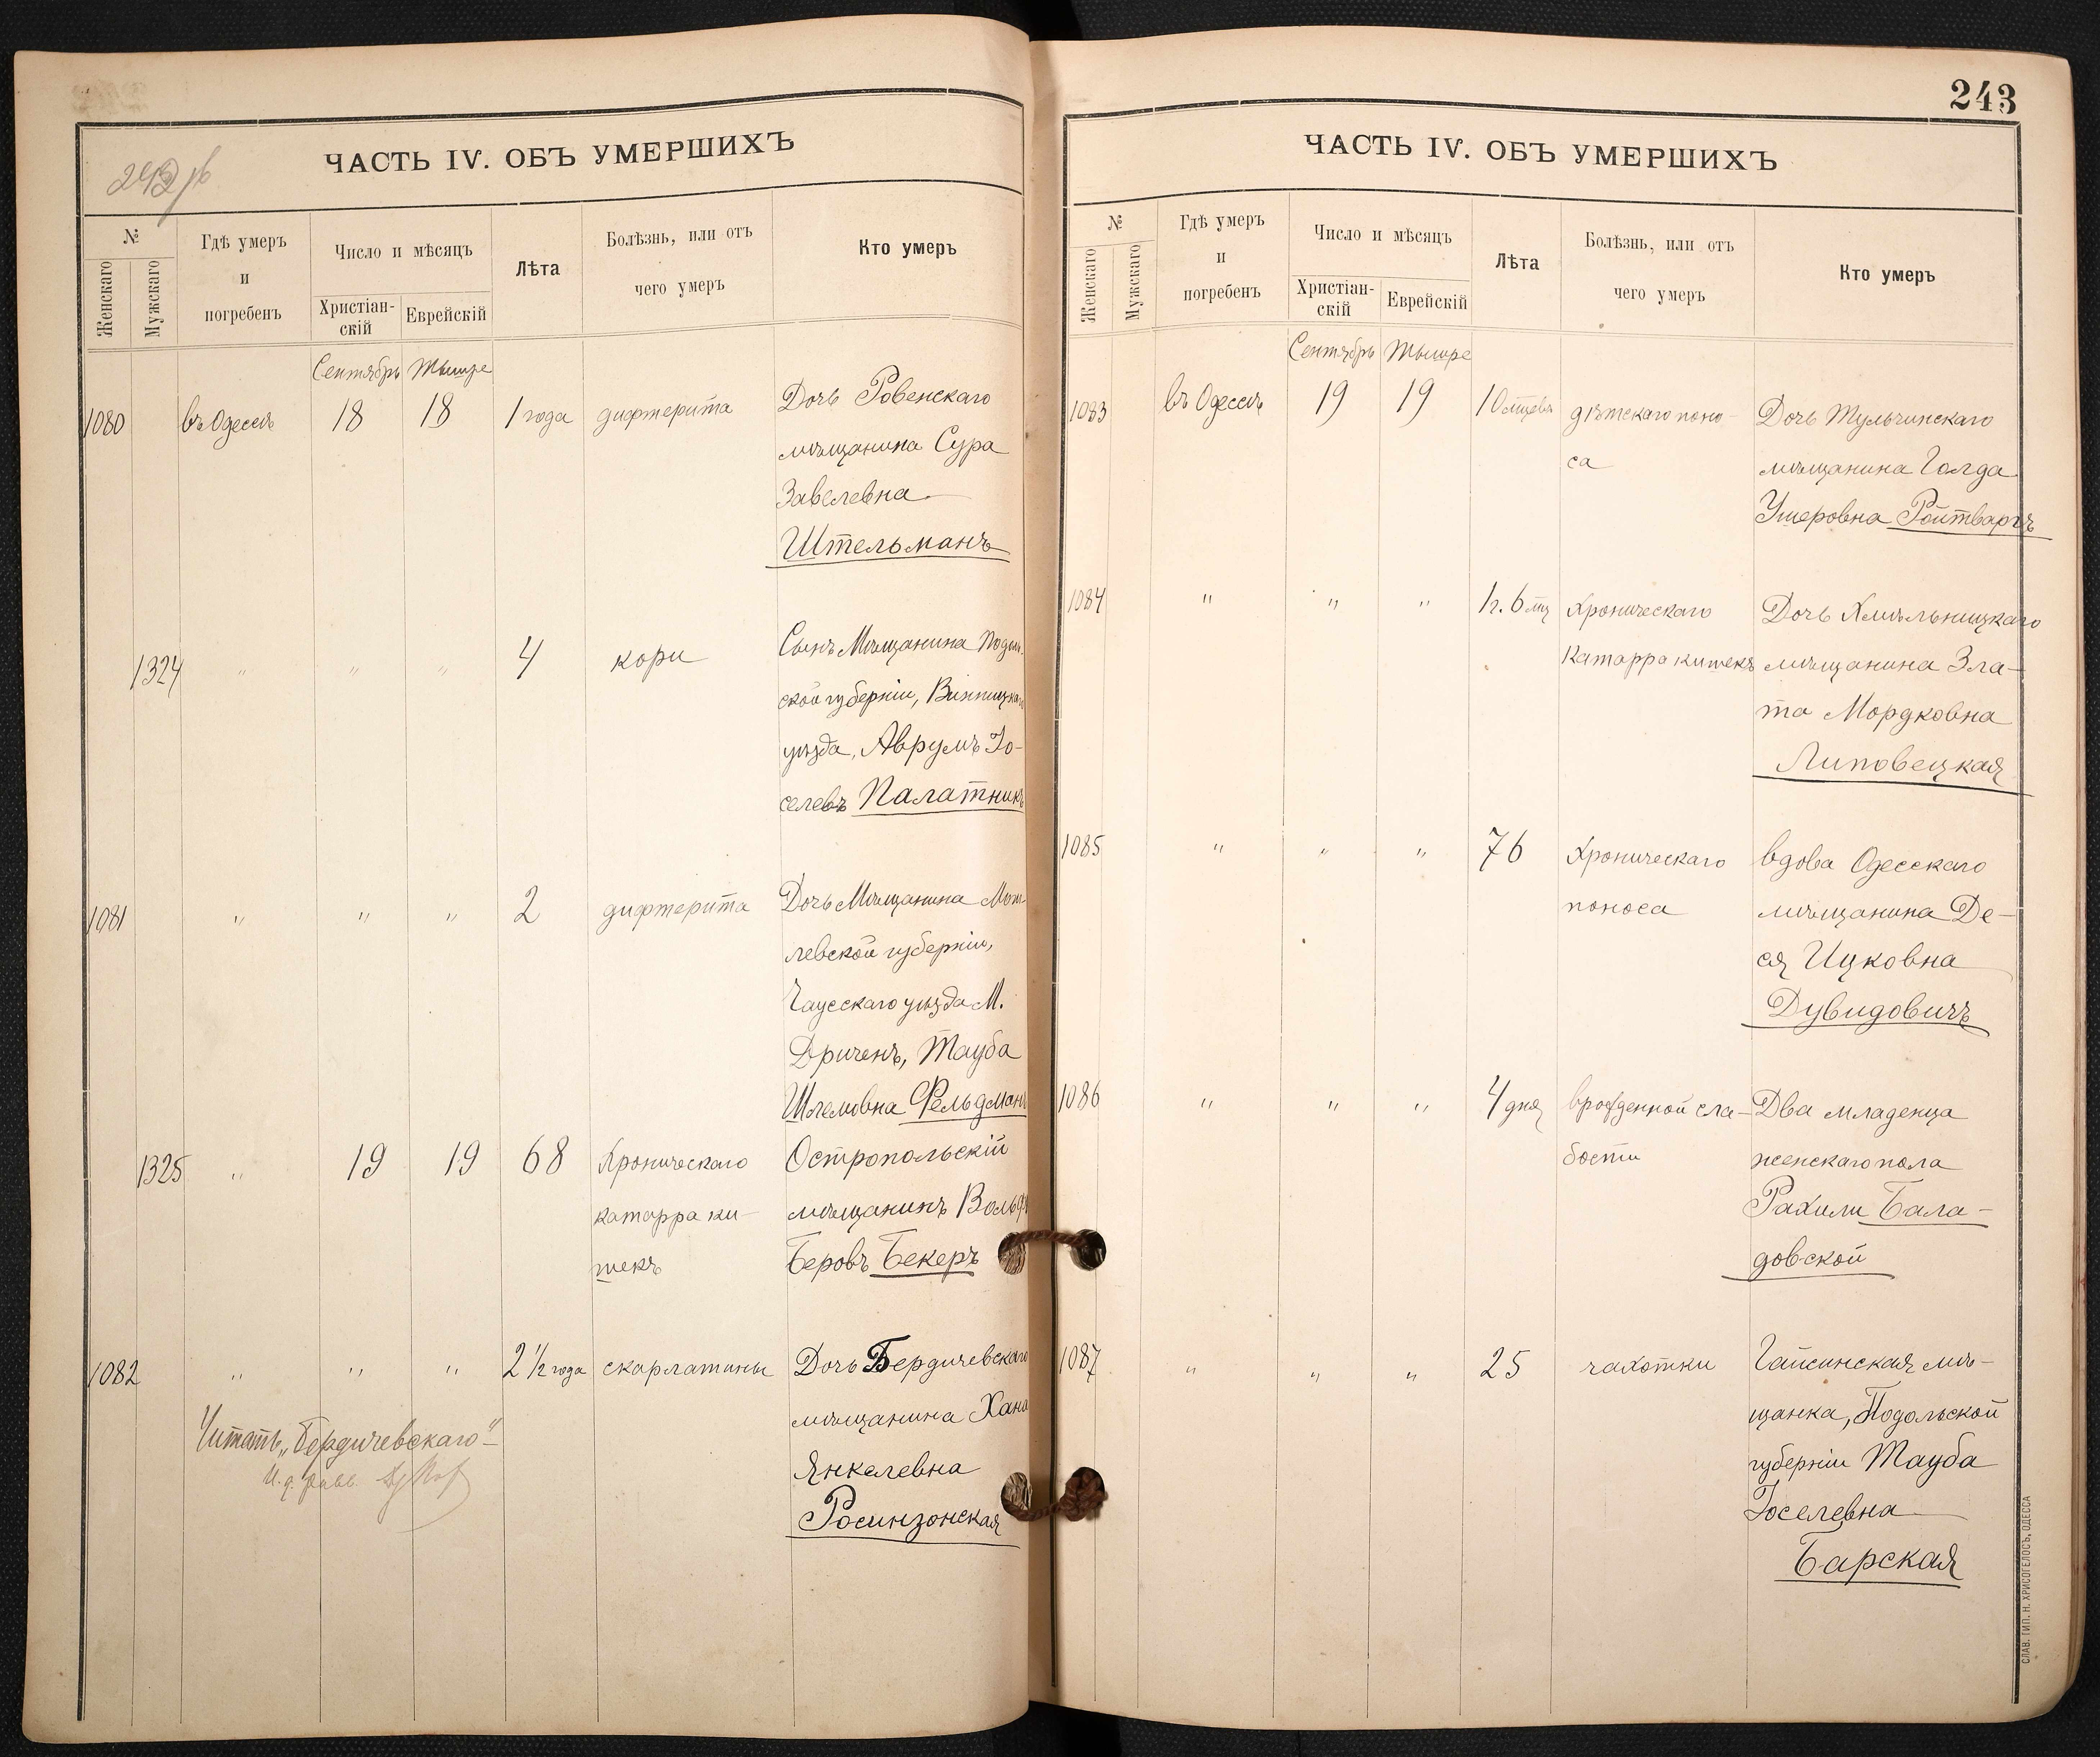 ЧАСТЬ IV. ОБЪ УМЕРШИХЪ
№
Женскаго
Мужскаго
Гдѣ умеръ
и
погребенъ
Число и мѣсяцъ
Христіан-
скій
Еврейскій
Лѣта
Болѣзнь, или отъ
чего умеръ
Кто умеръ
Сентябрь Тышре
1080 въ Одессѣ 18 18 1 года дифтерита Дочь Ровенскаго
мѣщанина Сура
Завелевна
Штельманъ
1324 " " " 4 кори Сынъ Мѣщанина Подоль-
ской губерніи, Винницкаго
уѣзда, Аврумъ Іо-
селевъ Палатникъ
1081 " " " 2 дифтерита Дочь Мѣщанина Моги-
левской губерніи,
Чаусскаго уѣзда М.
Дричень, Тауба
Шлемовна Фельдманъ
1325 " 19 19 68 Хроническаго Остропольскій
катарра ки- мѣщанинъ Вольфъ
шекъ Беровъ Бекеръ
1082 " " " 2 1/2 года скарлатины Дочь Бердичевскаго
мѣщанина Хана
Янкелевна
Росинзонская
Читать „Бердичевскаго"
И. д. равв.
243
ЧАСТЬ IV. ОБЪ УМЕРШИХЪ
№
Женскаго
Мужскаго
Гдѣ умеръ
и
погребенъ
Число и мѣсяцъ
Христіан-
скій
Еврейскій
Лѣта
Болѣзнь, или отъ
чего умеръ
Кто умеръ
Сентябрь Тышре
1083 въ Одессѣ 19 19 10 мцевъ дѣтскаго поно- Дочь Тульчинскаго
са мѣщанина Голда
Ушеровна Ройтваргъ
1084 " " " 1 г. 6 мц Хроническаго Дочь Хмѣльницкаго
катарра кишекъ мѣщанина Зла-
та Мордковна
Липовецкая
1085 " " " 76 Хроническаго вдова Одесскаго
поноса мѣщанина Де-
ся Ицковна
Дувидовичъ
1086 " " " 4 дня врожденной сла- Два младенца
бости женскаго пола
Рахили Бала-
довской
1087 " " " 25 чахотки Гайсинская мѣ-
щанка, Подольской
губерніи Тауба
Іоселевна
Барская
СЛАВ. ТИП. Н. ХРИСОГЕЛОСЪ, ОДЕССА